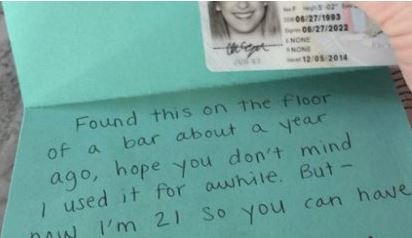 Sex F Height 5'-02"
DOB 06/27/1993
Expires 06/27/2022
E NONE
R NONE
Issued 12/05/2014
JUN 93
Found this on the floor
of a bar about a year
ago, hope you don't mind
I used it for awhile. But –
now I'm 21 so you can have